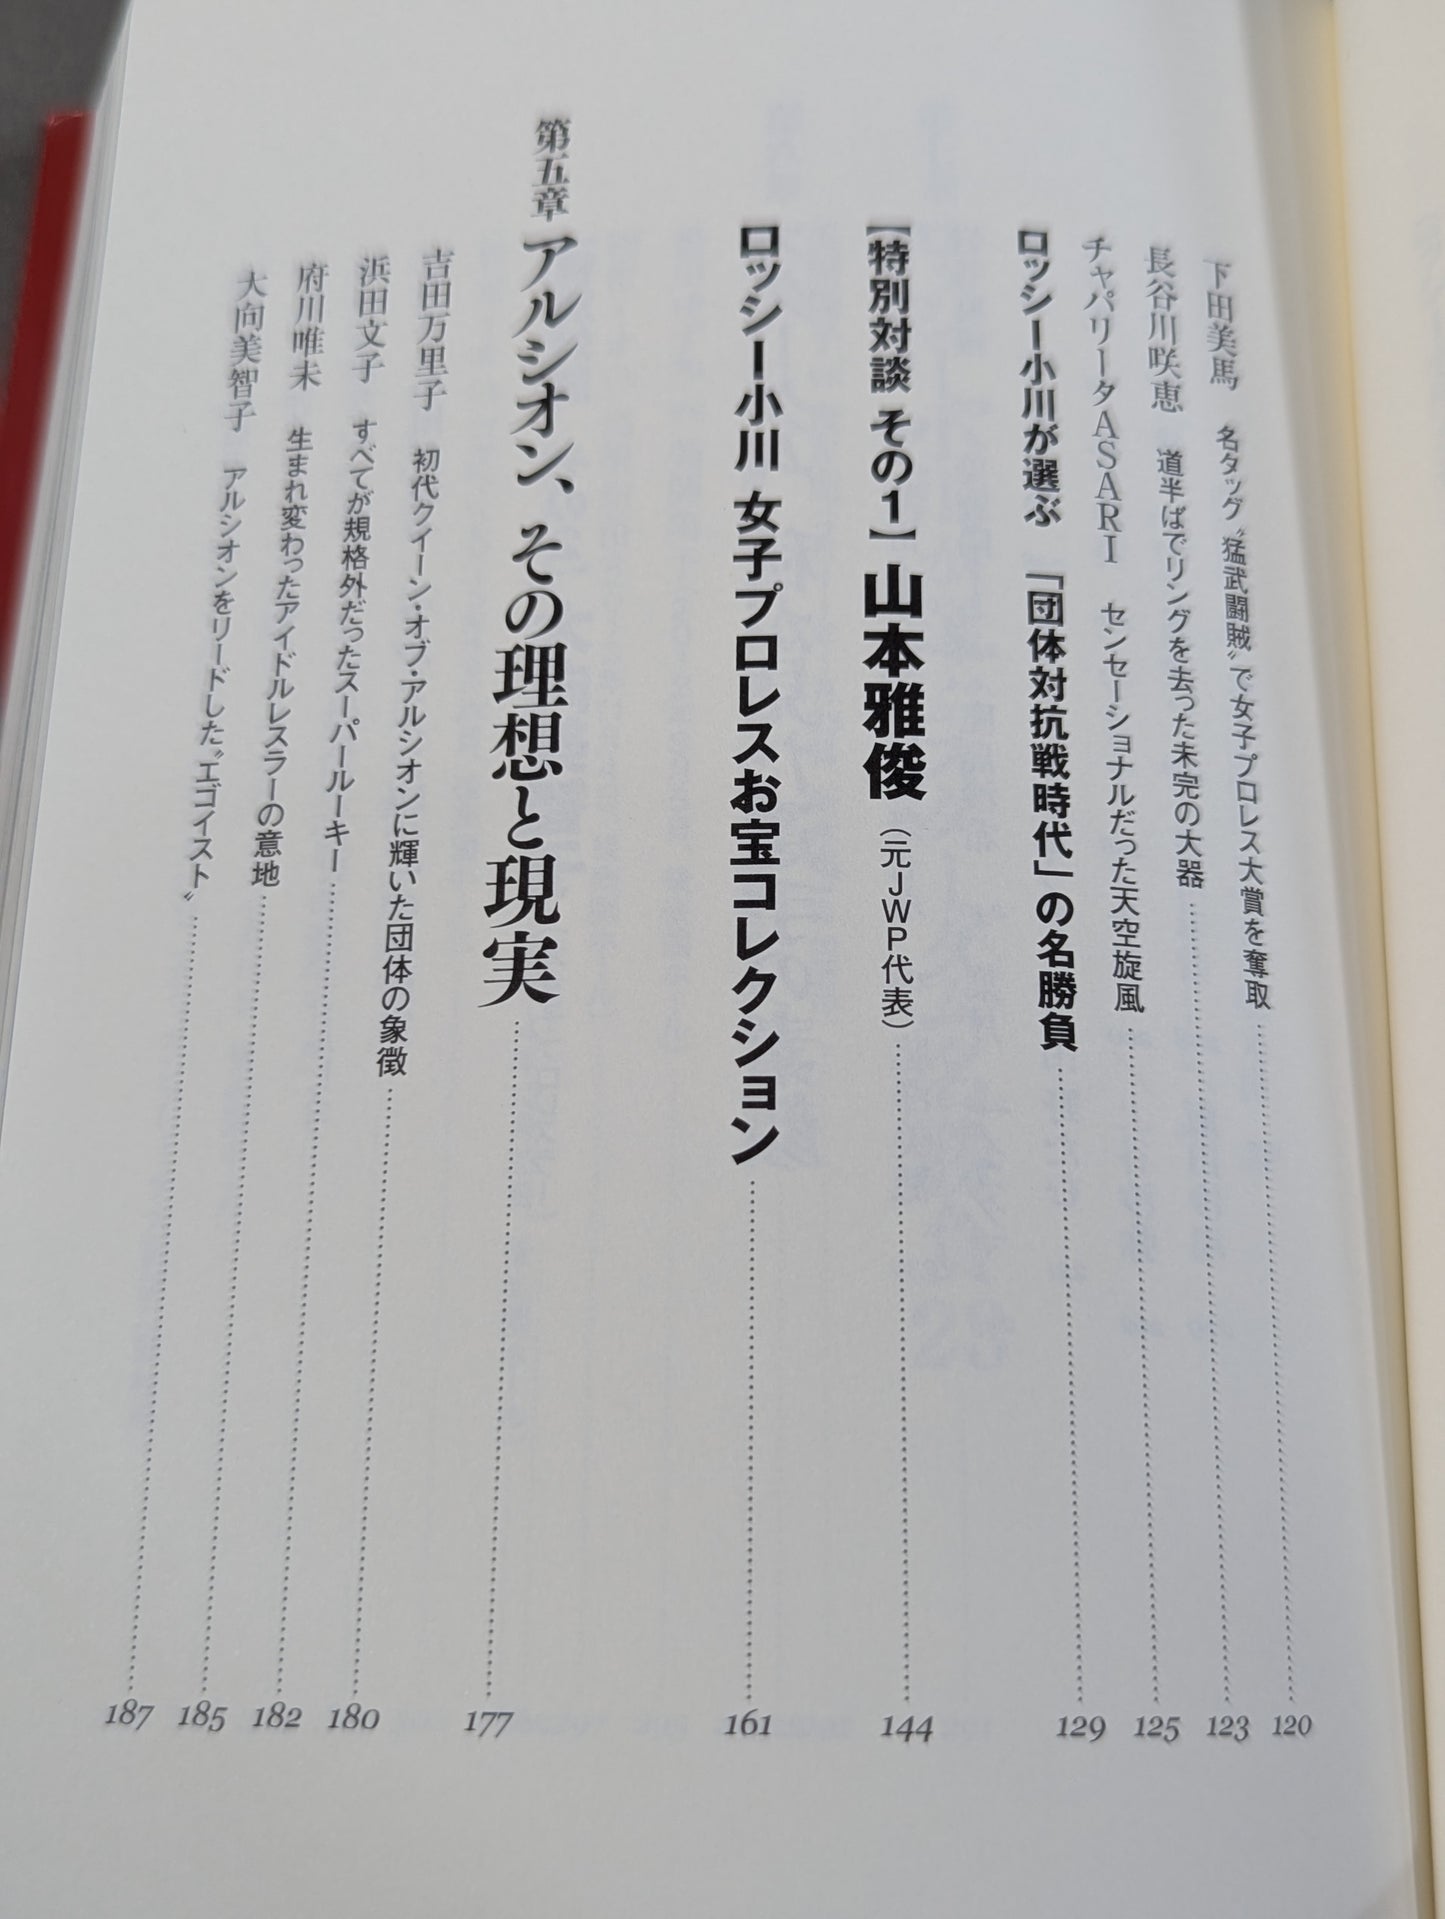 下田美馬　名タッグ〝猛武闘賊〟で女子プロレス大賞を奪取……120
長谷川咲恵　道半ばでリングを去った未完の大器……123
チャパリータASARI　センセーショナルだった天空旋風……125
ロッシー小川が選ぶ　「団体対抗戦時代」の名勝負……129
【特別対談 その1】山本雅俊（元JWP代表）……144
ロッシー小川 女子プロレスお宝コレクション……161
第五章 アルシオン、その理想と現実……177
吉田万里子　初代クイーン・オブ・アルシオンに輝いた団体の象徴……180
浜田文子　すべてが規格外だったスーパールーキー……182
府川唯未　生まれ変わったアイドルレスラーの意地……185
大向美智子　アルシオンをリードした〝エゴイスト〟……187